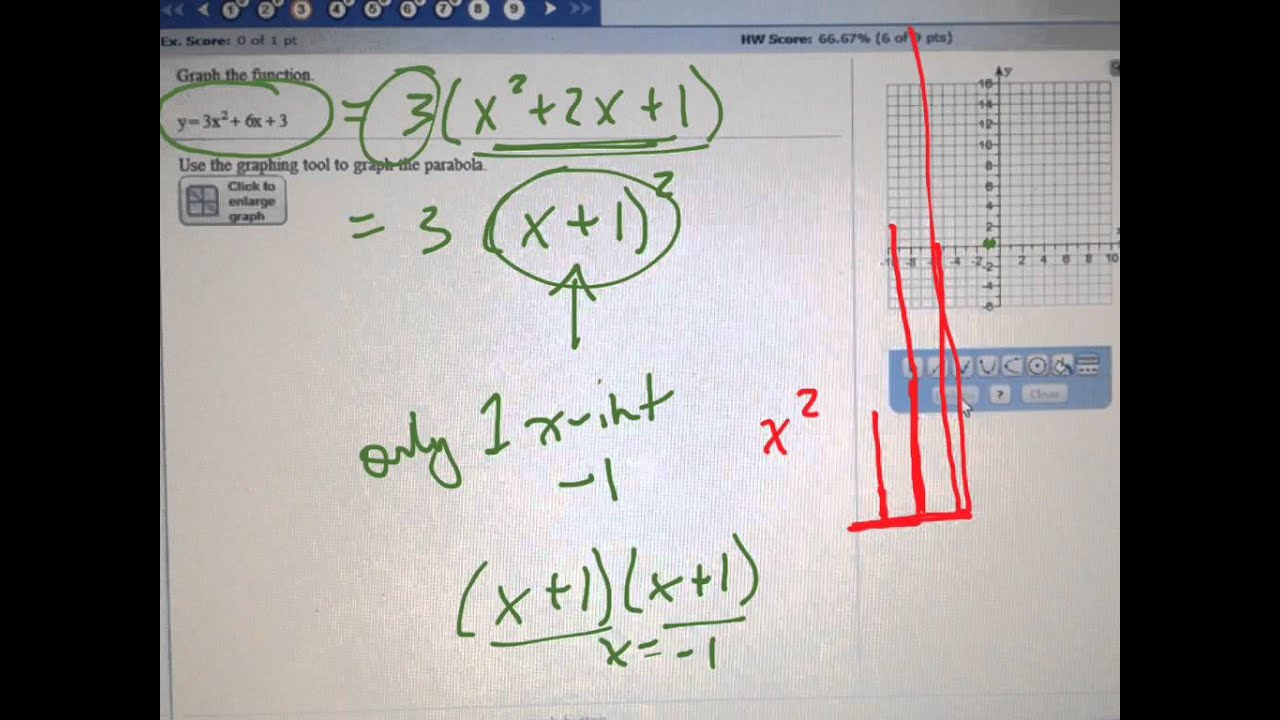 1 2 3 4 5 6 7 8 9
Ex. Score: 0 of 1 pt
HW Score: 66.67% (6 of 9 pts)
Graph the function.
y=3x²+6x+3
= 3(x²+2x+1)
Use the graphing tool to graph the parabola.
Click to
enlarge
graph
= 3 (x+1)²
only 1 x-int
-1
(x+1)(x+1)
x=-1
x²
y
16
14
12
10
8
6
4
2
-8 -4 -2 2 4 6 8 10
-2
-4
-6
? Clear